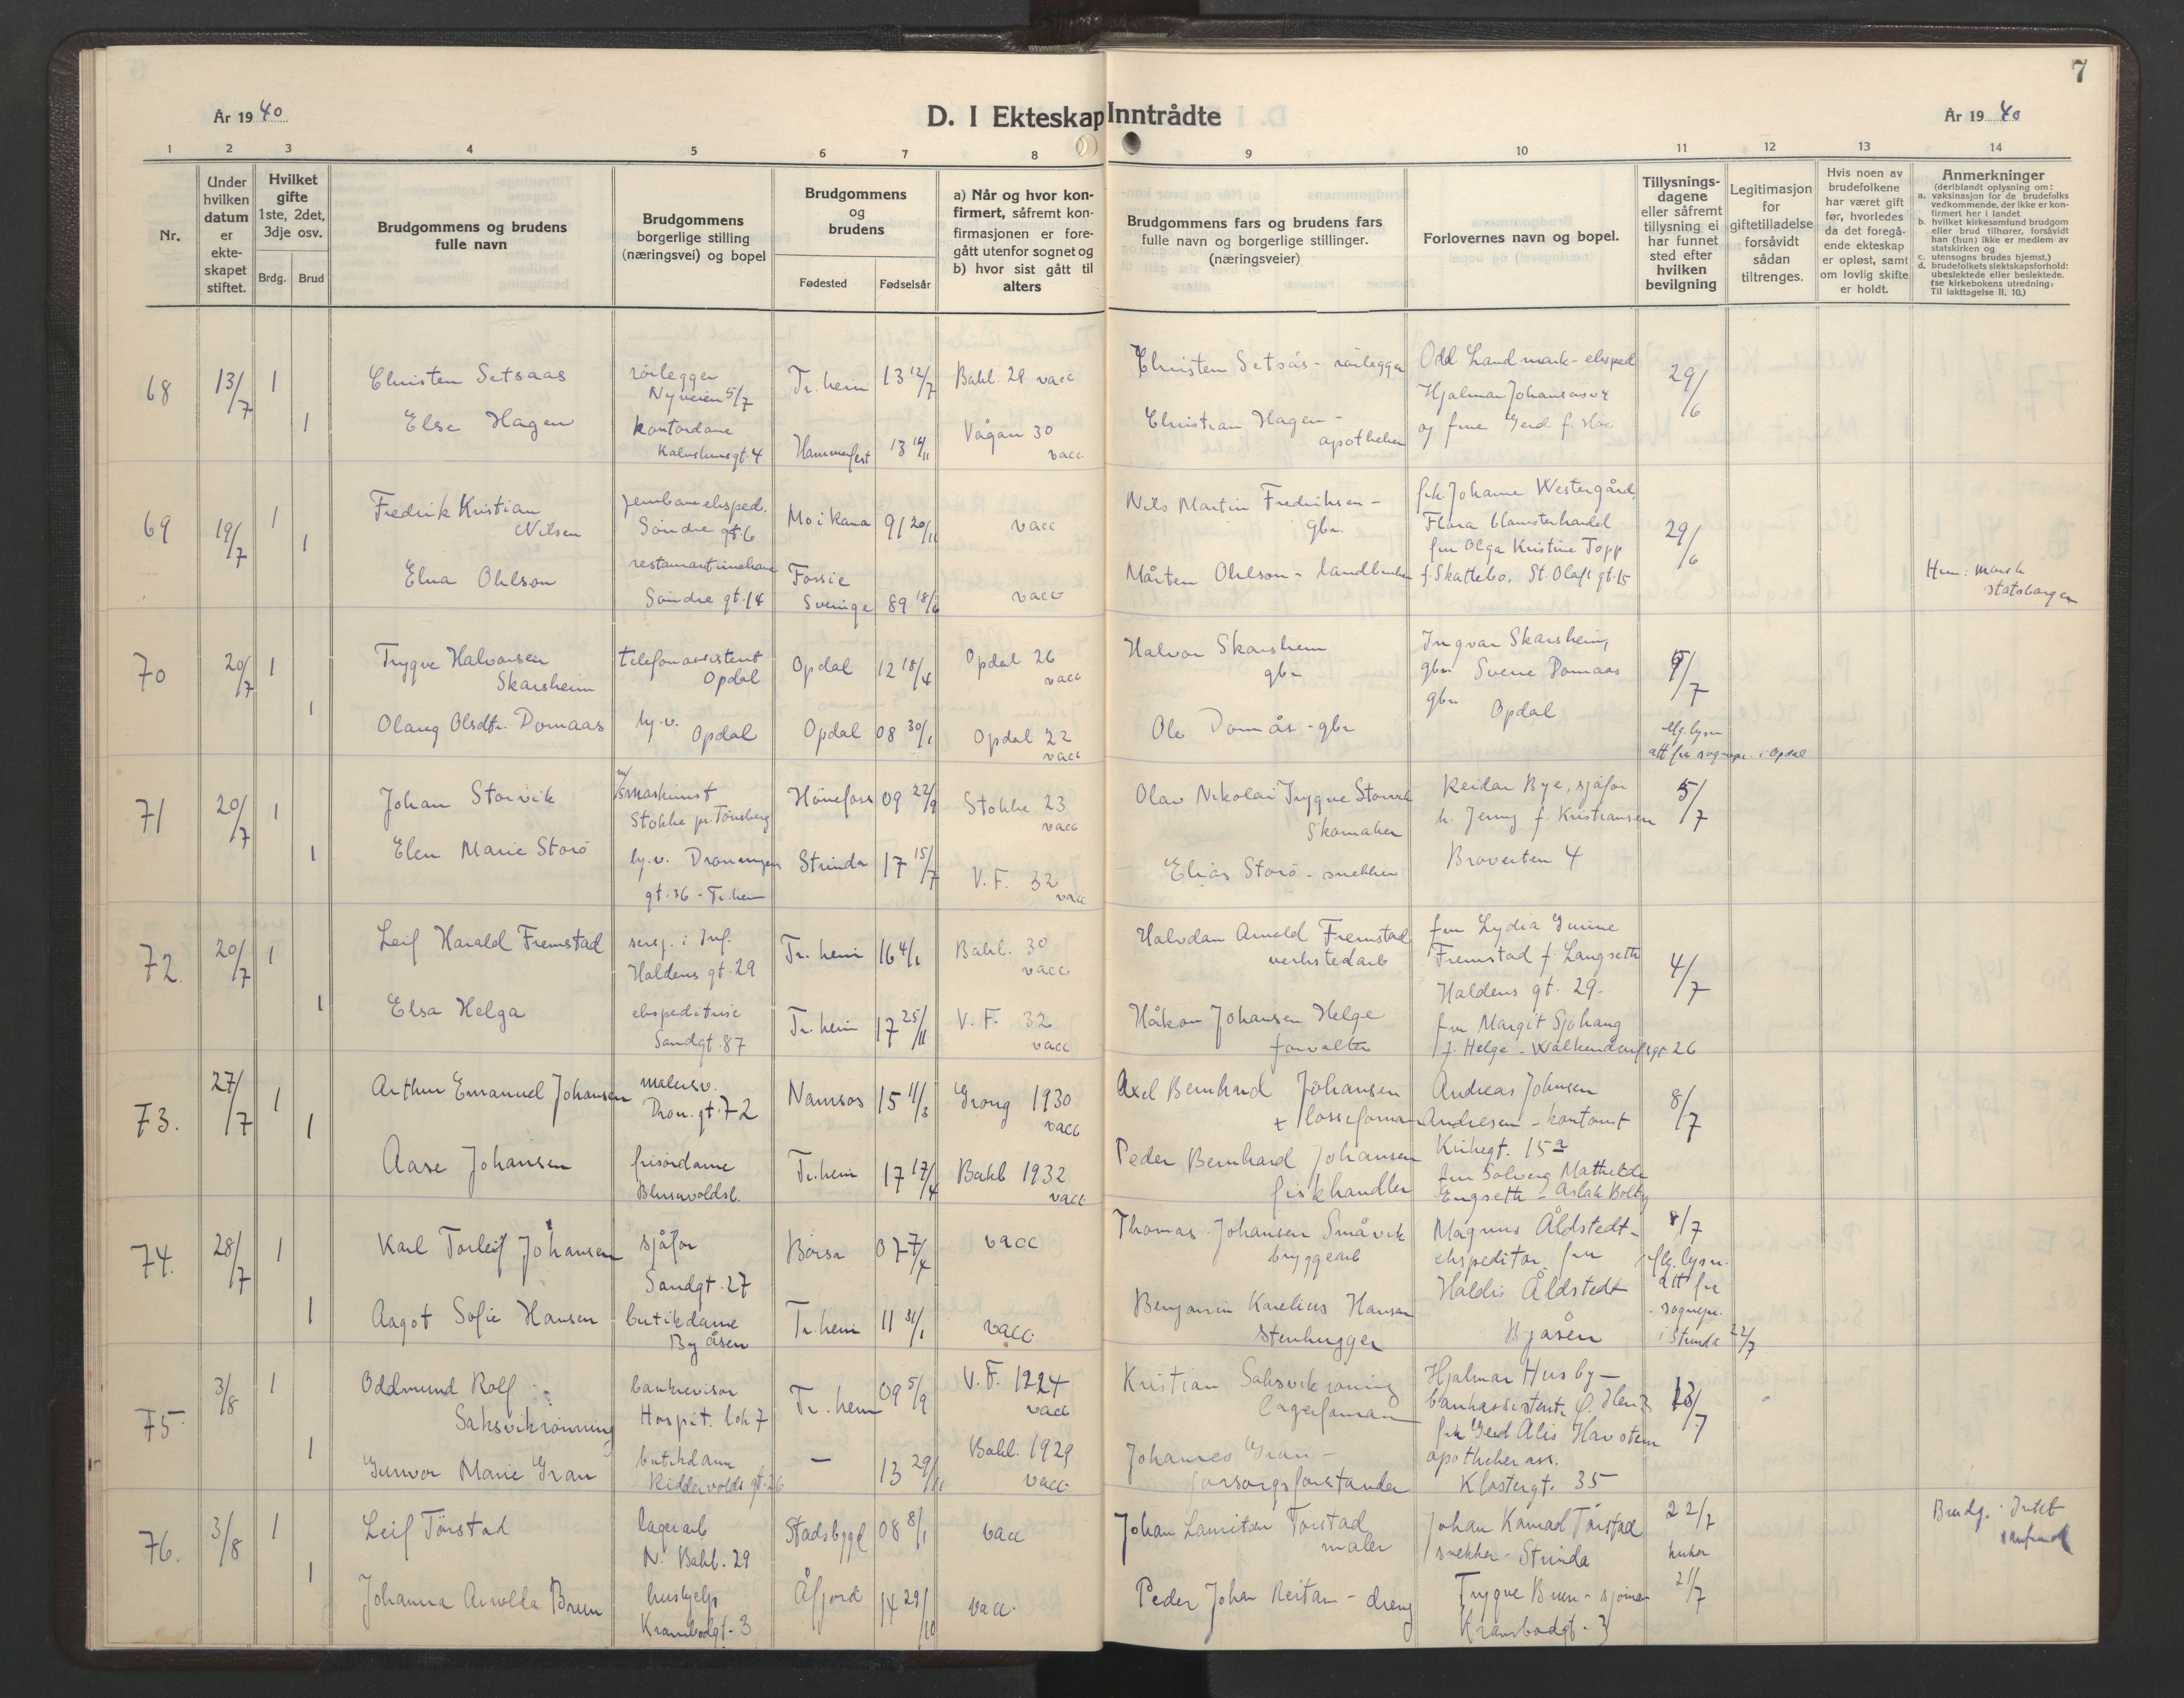 7
År 1940
D. I Ekteskap Inntrådte
År 1940
1 2 3 4 5 6 7 8 9 10 11 12 13 14
Nr.
Under hvilken datum er ekte-skapet stiftet.
Hvilket gifte 1ste, 2det, 3dje osv.
Brdg. Brud
Brudgommens og brudens fulle navn
Brudgommens borgerlige stilling (næringsvei) og bopel
Brudgommens og brudens
Fødested Fødselsår
a) Når og hvor kon-firmert, såfremt kon-firmasjonen er fore-gått utenfor sognet og b) hvor sist gått til alters
Brudgommens fars og brudens fars fulle navn og borgerlige stillinger. (næringsveier)
Forlovernes navn og bopel.
Tillysnings-dagene eller såfremt tillysning ei har funnet sted efter hvilken bevilgning
Legitimasjon for giftetilladelse forsåvidt sådan tiltrenges.
Hvis noen av brudefolkene har været gift før, hvorledes da det foregå-ende ekteskap er opløst, samt om lovlig skifte er holdt.
Anmerkninger
(deriblandt oplysning om:
a. vaksinasjon for de brudefolks vedkommende, der ikke er kon-firmert her i landet
b. hvilket kirkesamfund brudgom eller brud tilhører, forsåvidt han (hun) ikke er medlem av statskirken og
c. utensogns brudes hjemst.)
d. brudefolkets slektskapsforhold: ubeslektede eller beslektede.
(se kirkebokens utredning: Til iakttagelse II, 10.)
68 13/7 1 Christen Setsaas rörlegger Tr.heim 13 12/7 Bakl. 29 vacc Christen Setsås - rörlegger Odd Landmark - eksped 29/6
Nyveien 5/7 Hjalmar Johansensv
1 Else Hagen kontordame Hammerfest 13 Vågan 30 vacc Christian Hagen - apotheker og frue Gerd f.
gt. 4
69 19/7 1 Fredrik Kristian Nilsen jernbaneeksped. Mo i Rana 91 20/11 vacc Nils Martin Fredriksen - gbr. frk. Johanne Westergård, 29/6
Søndre gt. 6 Flora blomsterhandel
1 Elna Ohlson Fossie Sverige 89 18/6 vacc Mårten Ohlson - landbruker fru Olga Kristine Topp
Søndre gt. 14 f. Skattebo. St. Olafs gt. 15
Hun: norsk statsborger
70 20/7 1 Trygve Halvorsen Skarsheim telefonassistent Opdal Opdal 12 18/4 Opdal 26 vacc Halvor Skarsheim gbr Ingvar Skarsheim, 9/7
gbr Sverre Domaas
1 Olaug Olsdtr. Domaas hj.v. Opdal Opdal 08 30/1 Opdal 22 vacc Ole Domås - gbr gbr Opdal
flg. lysn. att fra sognepr. i Opdal
71 20/7 1 Johan Storvik maskinist Hönefoss 09 22/9 Stokke 23 vacc Olav Nikolai Trygve Storvik Skomaker Reidar Bye, sjåfør 5/7
Stokke pr. Tönsberg h. Jenny f. Kristiansen
1 Elen Marie Storö hj.v. Dronningen Strinda 17 15/7 V.F. 32 vacc Elias Storö - snekker Bröverten 4
gt. 36 - Tr.heim
72. 20/7 1 Leif Harald Fremstad sersj. i Inf. Tr.heim 16 4/1 Bakl. 30 vacc Halvdan Arnold Fremstad verkstedarb fru Lydia Gurine 4/7
Haldens gt. 29 Fremstad f. Langseth
Haldens gt. 29.
1 Elsa Helga ekspeditrise Tr.heim 17 25/11 V.F. 32 vacc Håkon Johansen Helge forvalter fru Margit Sjöhaug
Sandgt. 87 f. Helge - Walkendorfsgt 26
73. 27/7 1 Arthur Emanuel Johansen malersv. Namsos 15 11/3 Grong 1930 vacc Axel Bernhard Johansen Andreas Johnsen 8/7
Dron. gt. 72 + losseforman Andresen - kontorist
1 Aase Johansen frisördame Tr.heim 17 17/4 Bakl 1932 vacc Peder Bernhard Johansen fiskhandler Kirkegt. 15a
Blusuvoldsb. fru Solveig Mathilde Engseth - Aslak Bolts
74. 28/7 1 Karl Torleif Johansen sjåför Börsa 07 7/4 vacc Thomas Johansen Småvik bryggearb Magnus Åldstedt - 8/7
Sandgt. 27 ekspeditör, fru flg. lysn.
1 Aagot Sofie Hansen butikdame Tr.heim 11 31/1 vacc. Benjamin Karelius Hansen Stenhugger Haldis Åldstedt att fra sognepr.
Byåsen Byåsen i Strinda 22/7
75 3/8 1 Oddmund Rolf Saksvikrönning bankrevisor Tr.heim 09 5/9 V.F. 1224 vacc Kristian Saksvikrönning lagerforman Hjalmar Husby - 13/7
Hospit. lök 7 bankassistent
1 Gunvor Marie Gran butikdame — 13 29/11 Bakl. 1929 vacc. Johannes Gran - forsorgsforstander frk Gerd Alis Havstein
Riddervolds gt. 26 apotheker ass.
Klostergt. 35
76. 3/8 1 Leif Törstad lagerarb Stadsbygd 08 8/1 vacc Johan Lauritsen Torstad maler Johan Konrad Törstad 22/7
N. Bakl. 29 snekker - Strinda
1 Johanna Arnolda Bruun hushjelp Åfjord 14 29/10 vacc. Peder Johan Reitan - dreng Trygve Bruun - sjömann 21/7
Krambodgt. 3 Krambodgt. 3
Brudg. Intet samfund